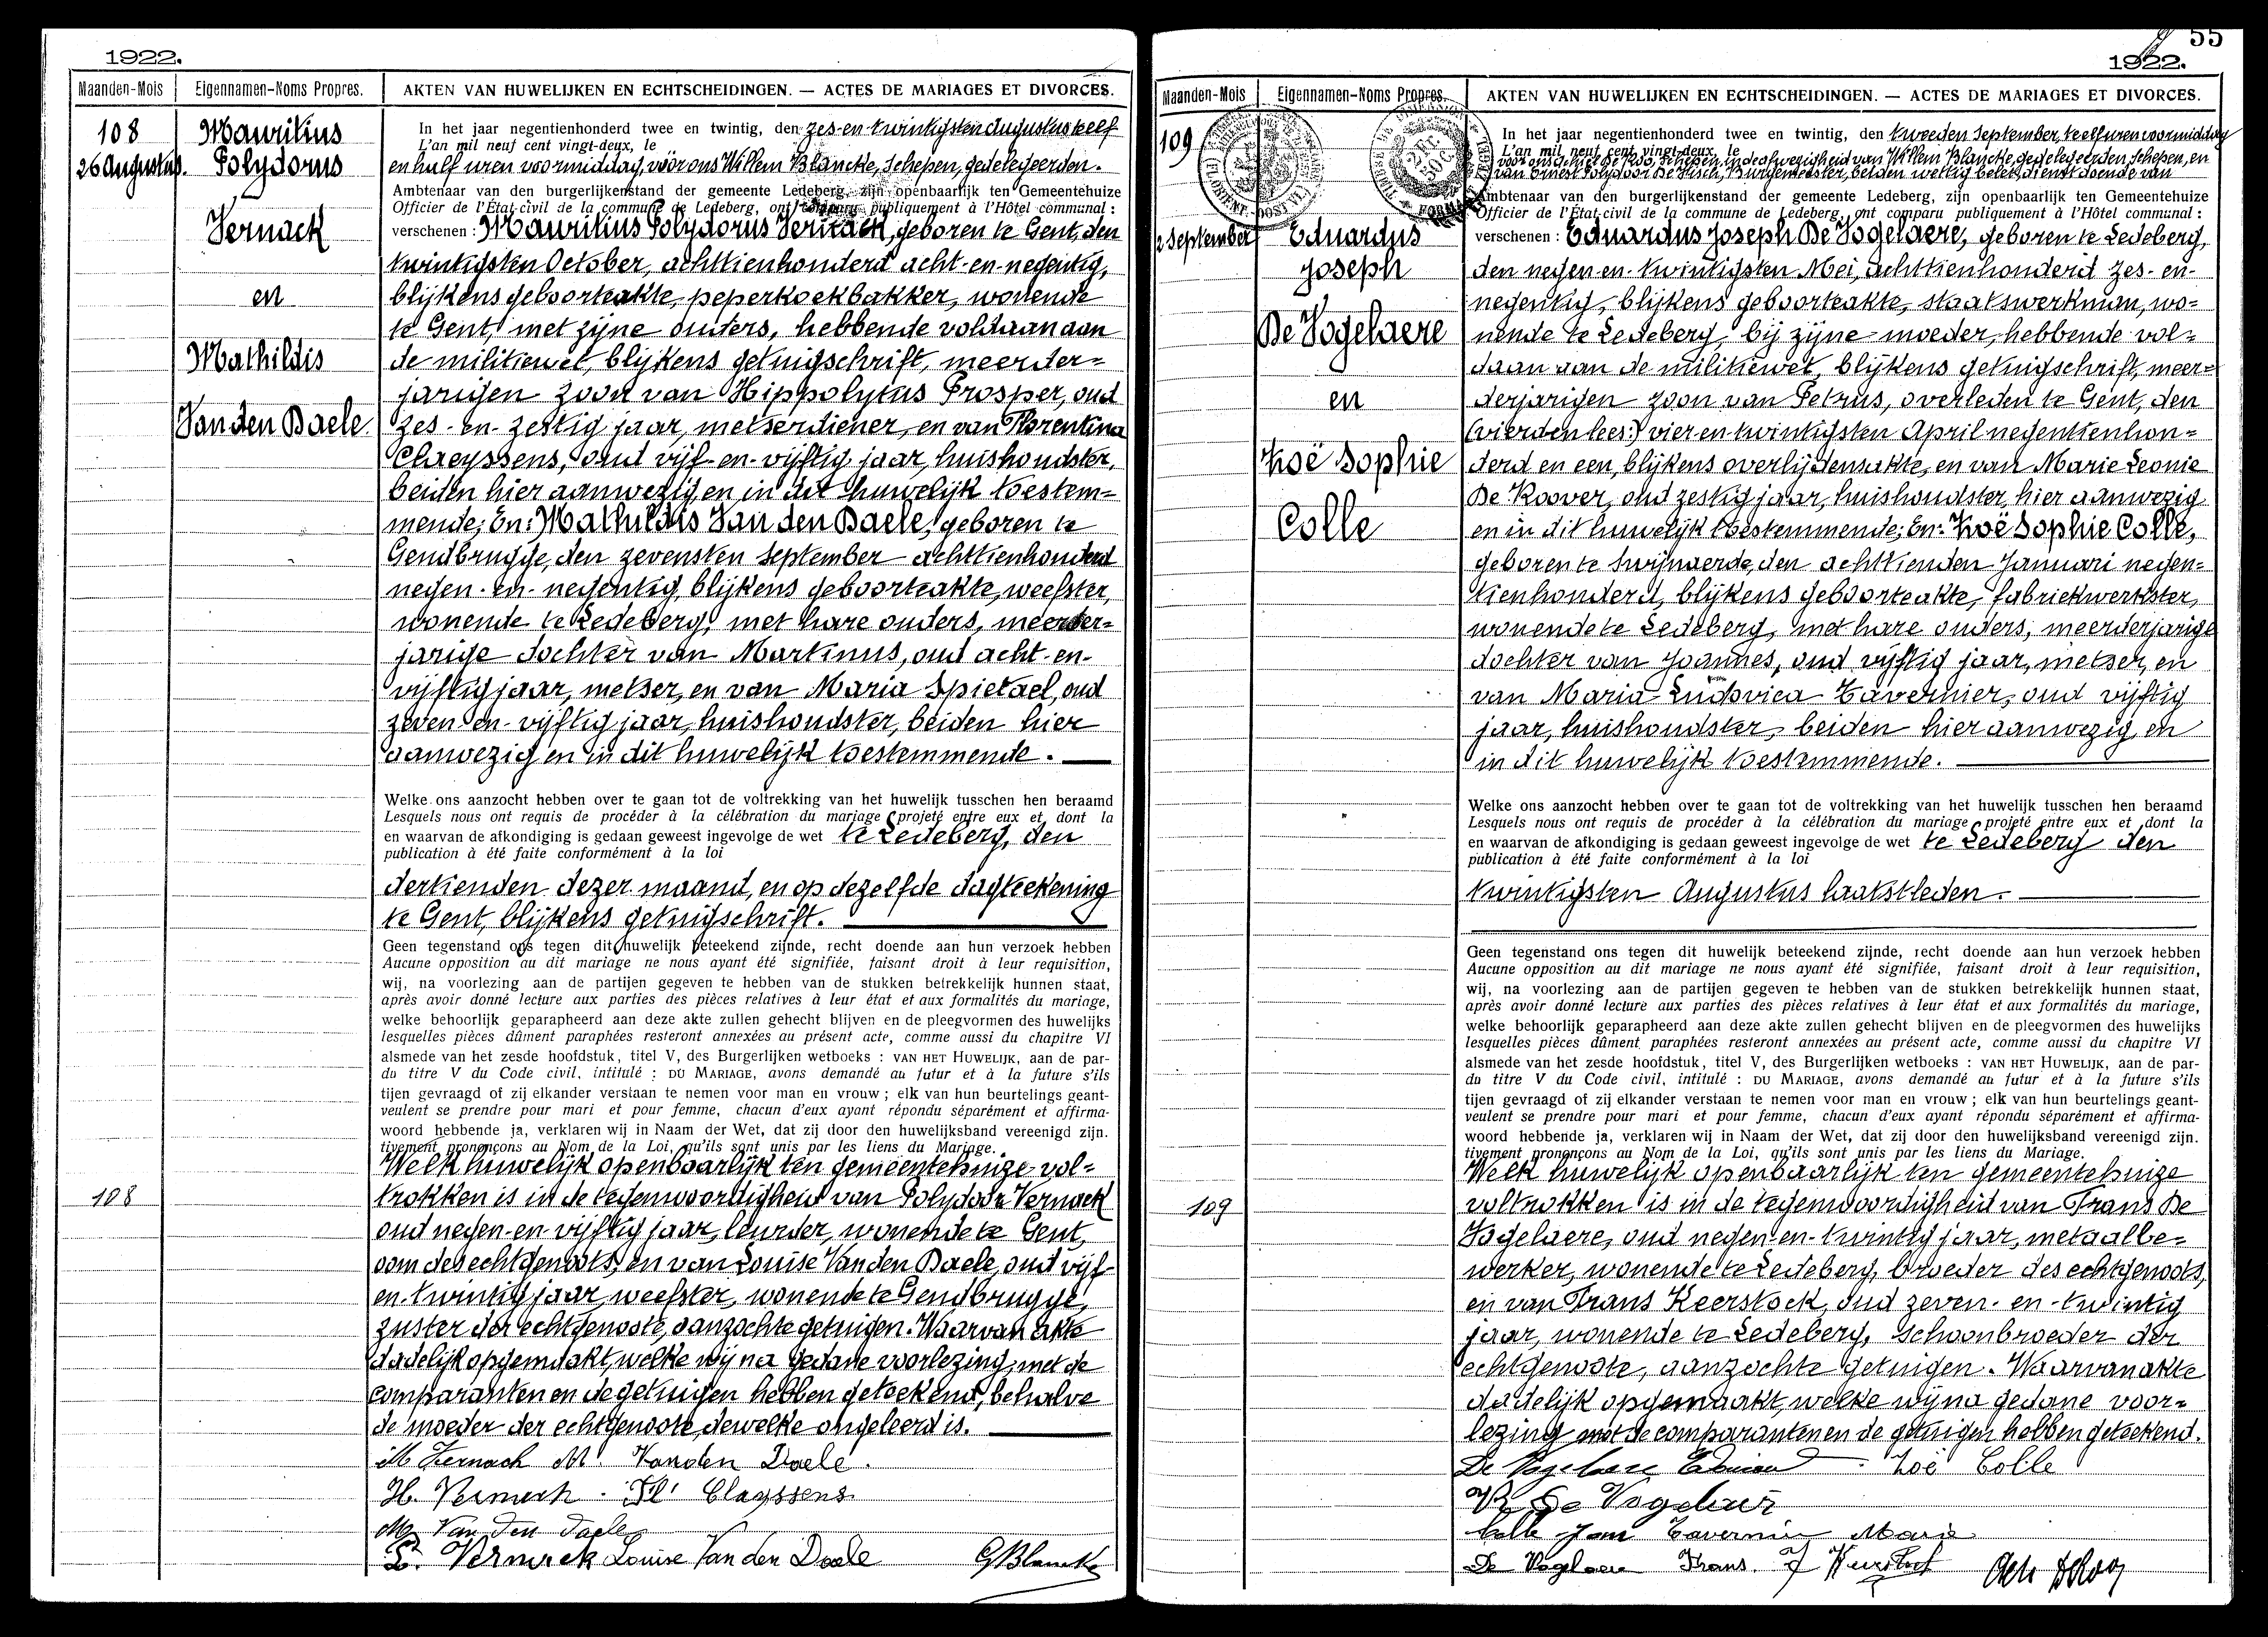 1922.
Maanden-Mois
Eigennamen-Noms Propres.
AKTEN VAN HUWELIJKEN EN ECHTSCHEIDINGEN. — ACTES DE MARIAGES ET DIVORCES.
108
26 Augustus.
Mauritius
Polydorus
Vernack
en
Mathildis
Van den Daele
In het jaar negentienhonderd twee en twintig, den zes-en-twintigsten Augustus te elf
L'an mil neuf cent vingt-deux, le
en half uren voormiddag, vóór ons Willem Blancke, Schepen, gedelegeerden.
Ambtenaar van den burgerlijkenstand der gemeente Ledeberg, zijn openbaarlijk ten Gemeentehuize
Officier de l'État-civil de la commune de Ledeberg, ont comparu publiquement à l'Hôtel communal :
verschenen : Mauritius Polydorus Vernack, geboren te Gent, den
twintigsten October, achttienhonderd acht-en-negentig,
blijkens geboorteakte, peperkoekbakker, wonende
te Gent, met zijne ouders, hebbende voldaan aan
de militiewet, blijkens getuigschrift, meerder=
jarigen zoon van Hippolytus Prosper, oud
zes-en-zestig jaar, metserdiener, en van Florentina
Claeyssens, oud vijf-en-vijftig jaar, huishoudster,
beiden hier aanwezig en in dit huwelijk toestem=
mende; En: Mathildis Van den Daele, geboren te
Gendbrugge, den zevensten September achttienhonderd
negen-en-negentig, blijkens geboorteakte, weefster,
wonende te Ledeberg, met hare ouders, meerder=
jarige dochter van Martinus, oud acht-en-
vijftig jaar, metser, en van Maria Spietael, oud
zeven-en-vijftig jaar, huishoudster, beiden hier
aanwezig en in dit huwelijk toestemmende.
Welke ons aanzocht hebben over te gaan tot de voltrekking van het huwelijk tusschen hen beraamd
Lesquels nous ont requis de procéder à la célébration du mariage projeté entre eux et dont la
en waarvan de afkondiging is gedaan geweest ingevolge de wet te Ledeberg, den
publication à été faite conformément à la loi
dertienden dezer maand, en op dezelfde dagteekening
te Gent, blijkens getuigschrift.
Geen tegenstand ons tegen dit huwelijk beteekend zijnde, recht doende aan hun verzoek hebben
Aucune opposition au dit mariage ne nous ayant été signifiée, faisant droit à leur requisition,
wij, na voorlezing aan de partijen gegeven te hebben van de stukken betrekkelijk hunnen staat,
après avoir donné lecture aux parties des pièces relatives à leur état et aux formalités du mariage,
welke behoorlijk geparapheerd aan deze akte zullen gehecht blijven en de pleegvormen des huwelijks
lesquelles pièces dûment paraphées resteront annexées au présent acte, comme aussi du chapitre VI
alsmede van het zesde hoofdstuk, titel V, des Burgerlijken wetboeks : VAN HET HUWELIJK, aan de par-
du titre V du Code civil, intitulé : DU MARIAGE, avons demandé au futur et à la future s'ils
tijen gevraagd of zij elkander verstaan te nemen voor man en vrouw ; elk van hun beurtelings geant-
veulent se prendre pour mari et pour femme, chacun d'eux ayant répondu séparément et affirma-
woord hebbende ja, verklaren wij in Naam der Wet, dat zij door den huwelijksband vereenigd zijn.
tivement prononçons au Nom de la Loi, qu'ils sont unis par les liens du Mariage.
Welk huwelijk openbaarlijk ten gemeentehuize vol=
108
trokken is in de tegenwoordigheid van Polydoor Vernack
oud negen-en-vijftig jaar, leurder, wonende te Gent,
oom des echtgenoots, en van Louise Van den Daele, oud vijf-
en-twintig jaar, weefster, wonende te Gendbrugge,
zuster der echtgenoote, aanzochte getuigen. Waarvan akte
dadelijk opgemaakt, welke wij na gedane voorlezing, met de
comparanten en de getuigen hebben geteekend, behalve
de moeder der echtgenoote, dewelke ongeleerd is.
M Vernack M. Van den Daele.
H. Vernack. Fl. Clayssens
M Van den Daele
Vernack Louise Van den Daele GBlancke
55
1922.
Maanden-Mois
Eigennamen-Noms Propres.
AKTEN VAN HUWELIJKEN EN ECHTSCHEIDINGEN. — ACTES DE MARIAGES ET DIVORCES.
109
2 September
Eduardus
Joseph
De Vogelaere
en
Zoë Sophie
Colle
In het jaar negentienhonderd twee en twintig, den tweeden September, te elf uren voormiddag
L'an mil neuf cent vingt-deux, le
voor ons Achiel De Roo, Schepen, in de afwezigheid van Willem Blancke, gedelegeerden Schepen, en
van Ernest Polydoor De Visch, Burgemeester, beiden wettig belet, dienst doende van
Ambtenaar van den burgerlijkenstand der gemeente Ledeberg, zijn openbaarlijk ten Gemeentehuize
Officier de l'État-civil de la commune de Ledeberg, ont comparu publiquement à l'Hôtel communal :
verschenen : Eduardus Joseph De Vogelaere, geboren te Ledeberg,
den negen-en-twintigsten Mei, achttienhonderd zes-en-
negentig, blijkens geboorteakte, staatswerkman, wo=
nende te Ledeberg, bij zijne moeder, hebbende vol=
daan aan de militiewet, blijkens getuigschrift, meer=
derjarigen zoon van Petrus, overleden te Gent, den
(vierden lees:) vier-en-twintigsten April negentienhon=
derd en een, blijkens overlijdensakte, en van Marie Leonie
De Roover, oud zestig jaar, huishoudster, hier aanwezig
en in dit huwelijk toestemmende; En: Zoë Sophie Colle,
geboren te Swijnaerde, den achttienden Januari negen=
tienhonderd, blijkens geboorteakte, fabriekwerkster,
wonende te Ledeberg, met hare ouders, meerderjarige
dochter van Joannes, oud vijftig jaar, metser, en
van Maria Ludovica Tavernier, oud vijftig
jaar, huishoudster, beiden hier aanwezig en
in dit huwelijk toestemmende.
Welke ons aanzocht hebben over te gaan tot de voltrekking van het huwelijk tusschen hen beraamd
Lesquels nous ont requis de procéder à la célébration du mariage projeté entre eux et dont la
en waarvan de afkondiging is gedaan geweest ingevolge de wet te Ledeberg den
publication à été faite conformément à la loi
twintigsten Augustus laatstleden.
Geen tegenstand ons tegen dit huwelijk beteekend zijnde, recht doende aan hun verzoek hebben
Aucune opposition au dit mariage ne nous ayant été signifiée, faisant droit à leur requisition,
wij, na voorlezing aan de partijen gegeven te hebben van de stukken betrekkelijk hunnen staat,
après avoir donné lecture aux parties des pièces relatives à leur état et aux formalités du mariage,
welke behoorlijk geparapheerd aan deze akte zullen gehecht blijven en de pleegvormen des huwelijks
lesquelles pièces dûment paraphées resteront annexées au présent acte, comme aussi du chapitre VI
alsmede van het zesde hoofdstuk, titel V, des Burgerlijken wetboeks : VAN HET HUWELIJK, aan de par-
du titre V du Code civil, intitulé : DU MARIAGE, avons demandé au futur et à la future s'ils
tijen gevraagd of zij elkander verstaan te nemen voor man en vrouw ; elk van hun beurtelings geant-
veulent se prendre pour mari et pour femme, chacun d'eux ayant répondu séparément et affirma-
woord hebbende ja, verklaren wij in Naam der Wet, dat zij door den huwelijksband vereenigd zijn.
tivement prononçons au Nom de la Loi, qu'ils sont unis par les liens du Mariage.
Welk huwelijk openbaarlijk ten gemeentehuize
109
voltrokken is in de tegenwoordigheid van Frans De
Vogelaere, oud negen-en-twintig jaar, metaalbe=
werker, wonende te Ledeberg, broeder des echtgenoots,
en van Frans Keerstock, oud zeven-en-twintig
jaar, wonende te Ledeberg, schoonbroeder der
echtgenoote, aanzochte getuigen. Waarvan akte
dadelijk opgemaakt, welke wij na gedane voor=
lezing met de comparanten en de getuigen hebben geteekend.
De Vogelaere Zoë Colle
De Vogelaere
Colle Jan Tavernier Marie
De Vogelaere Frans. F Keerstock